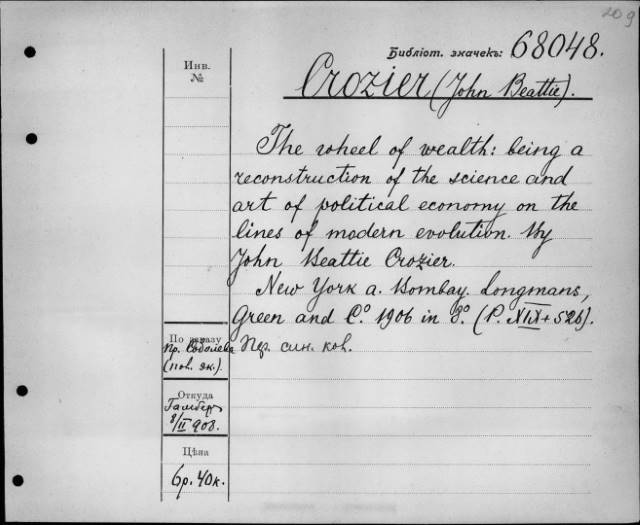 209
Библіот. значекъ: 68048.
Инв.
№
Crozier (John Beattie).
The wheel of wealth: being a
reconstruction of the science and
art of political economy on the
lines of modern evolution. By
John Beattie Crozier.
New York a. Bombay. Longmans,
Green and Cº 1906 in 8º. (P. XIX+526).
Пр. син. ков.
По заказу
Пр. Соболева
(пов. эк.).
Откуда
8/II 908.
Цѣна
6р. 40к.